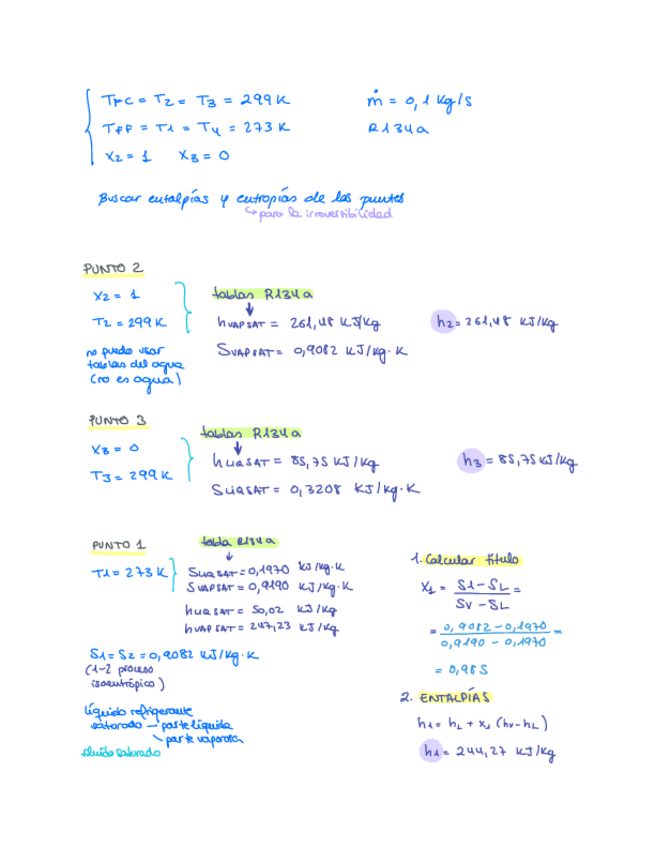 TFC = T2 = T3 = 299 K
ṁ = 0,1 kg/s
TFF = T1 = T4 = 273 K
R134a
X2 = 1 X3 = 0
Buscar entalpías y entropías de los puntos
↳ para la irreversibilidad
PUNTO 2
X2 = 1
T2 = 299 K
no puedo usar
tablas del agua
(no es agua)
tablas R134a
↓
hVAPSAT = 261,48 kJ/kg
SVAPSAT = 0,9082 kJ/kg·K
h2 = 261,48 kJ/kg
PUNTO 3
X3 = 0
T3 = 299 K
tablas R134a
↓
hLIQSAT = 85,75 kJ/kg
SLIQSAT = 0,3208 kJ/kg·K
h3 = 85,75 kJ/kg
PUNTO 1
T1 = 273 K
tabla R134a
↓
SLIQ SAT = 0,1970 kJ/kg·K
SVAPSAT = 0,9190 kJ/kg·K
hLIQSAT = 50,02 kJ/kg
hVAPSAT = 247,23 kJ/kg
S1 = S2 = 0,9082 kJ/kg·K
(1-2 proceso
isoentrópico)
líquido refrigerante
saturado – parte líquida
\ parte vaporosa
fluido saturado
1. Calcular título
X1 = S1 – SL / SV – SL =
= 0,9082 – 0,1970 / 0,9190 – 0,1970 =
= 0,985
2. ENTALPÍAS
h1 = hL + x1 (hv – hL)
h1 = 244,27 kJ/kg